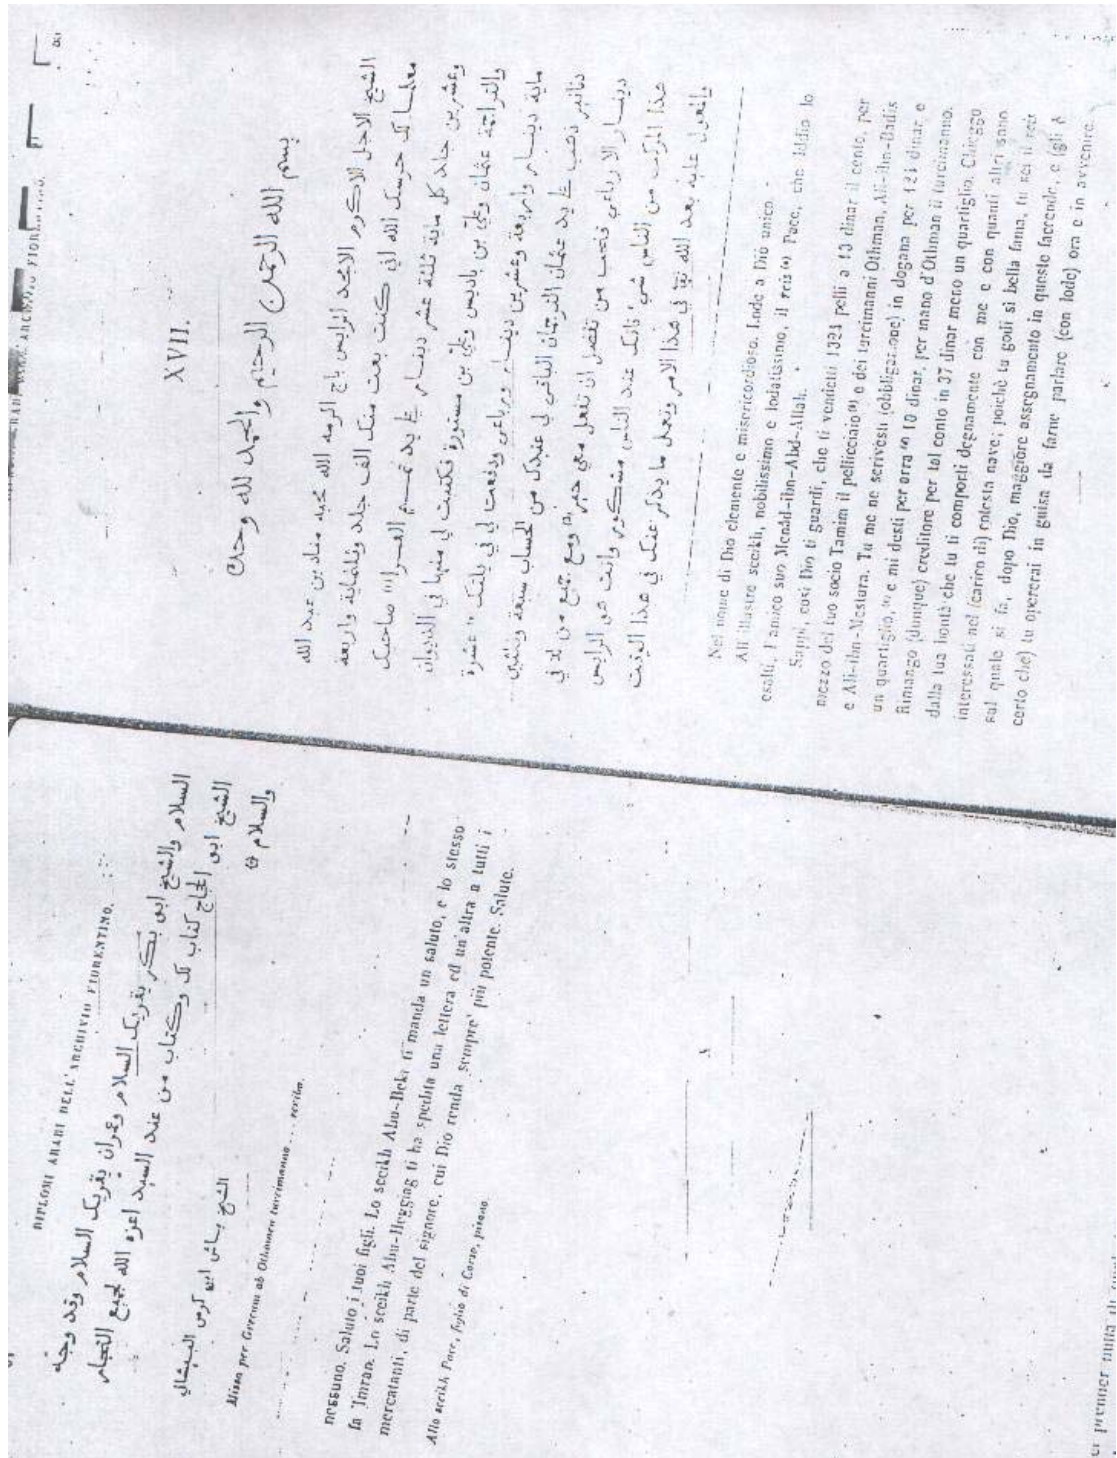 DIPLOMI ARABI DELL'ARCHIVIO FIORENTINO.
السلام والشيخ ابو بكر يقريك السلام وعمران يقريك السلام وقد وجّه
الشيخ ابو الحجاج كتاب لك وكتاب من عند السيد اعزه الله لجميع التجار
والسلام
الشيخ باش ابن كرس البيشاني
Missa per Gerecum ab Othomen turcimanno.... scriba.
nessuno. Saluto i tuoi figli. Lo sceikh Abu-Bekr ti manda un saluto, e lo stesso
fa 'Imran. Lo sceikh Abu-Heggiag ti ha spedita una lettera ed un'altra a tutti i
mercatanti, di parte del signore, cui Dio renda sempre più potente. Salute.
Allo sceikh Pace, figlio di Corso, pisano.
ARCHIVIO FIORENTINO.
XVII.
بسم الله الرحمن الرحيم والحمد لله وحده
الشيخ الاجل الاكرم الامجد الرايس باج الرمه الله محبه مناد بن عبد الله
معلما لك حرسك الله اني كنت بعت منك الف جلد وثلثماية واربعة
وعشرين جلد كل ماية ثلثة عشر دينار على يد تميم صاحبك
والتراجمة عثمان وعلي بن باديس وعلي بن مستورة فكتبت لي منها في الديوان
ماية دينار واربعة وعشرين دينار ورباعي ودفعت لي في عشرة
دنانير ذهب على يد عثمان الترجمان الباقي لي عندك من الحساب سبعة وثلثين
دينار الا رباعي فنحب من تفضل ان تفعل معي خير ومع جميع من له في
هذا المركب من الناس شي فانك عند الناس مشكور وانت هو الرايس
والمعول عليه بعد الله تع في هذا الامر وتعمل ما يذكر عنك في هذا الوقت
Nel nome di Dio clemente e misericordioso. Lode a Dio unico.
All'illustre sceikh, nobilissimo e lodatissimo, il reis Pace, che Iddio lo
esalti, l'amico suo Menâd-ibn-Abd-Allah.
Sappi, così Dio ti guardi, che ti vendetti 1324 pelli a 13 dinar il cento, per
mezzo del tuo socio Tamim il pellicciaio e dei turcimanni Othman, Ali-ibn-Badis
e Ali-ibn-Mestura. Tu me ne scrivesti (obbligazione) in dogana per 124 dinar e
un quartiglio, e mi desti per arra 10 dinar, per mano d'Othman il turcimanno.
Rimango (dunque) creditore per tal conto in 37 dinar meno un quartiglio. Chieggo
dalla tua bontà che tu ti comporti degnamente con me e con quanti altri sono
interessati nel (carico di) cotesta nave; poichè tu godi sì bella fama, tu sei il reis
sul quale si fa, dopo Dio, maggiore assegnamento in queste faccende, e (gli è
certo che) tu opererai in guisa da farne parlare (con lode) ora e in avvenire.